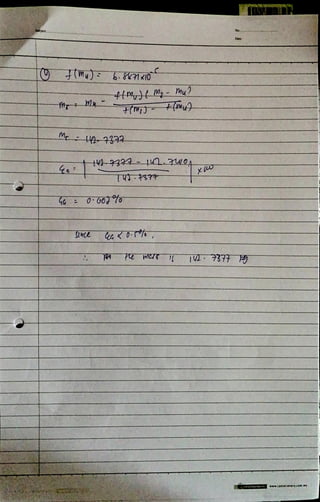 f(mu) = 6.8871x10^-5
mr = mu - f(mu)(ml - mu) / f(ml) - f(mu)
mr = 142.7377
εa = | 142.7377 - 142.7380 / 142.7377 | x 100
εa = 0.0002%
Since εa < 0.5%.
∴ the mass is 142.7377 kg